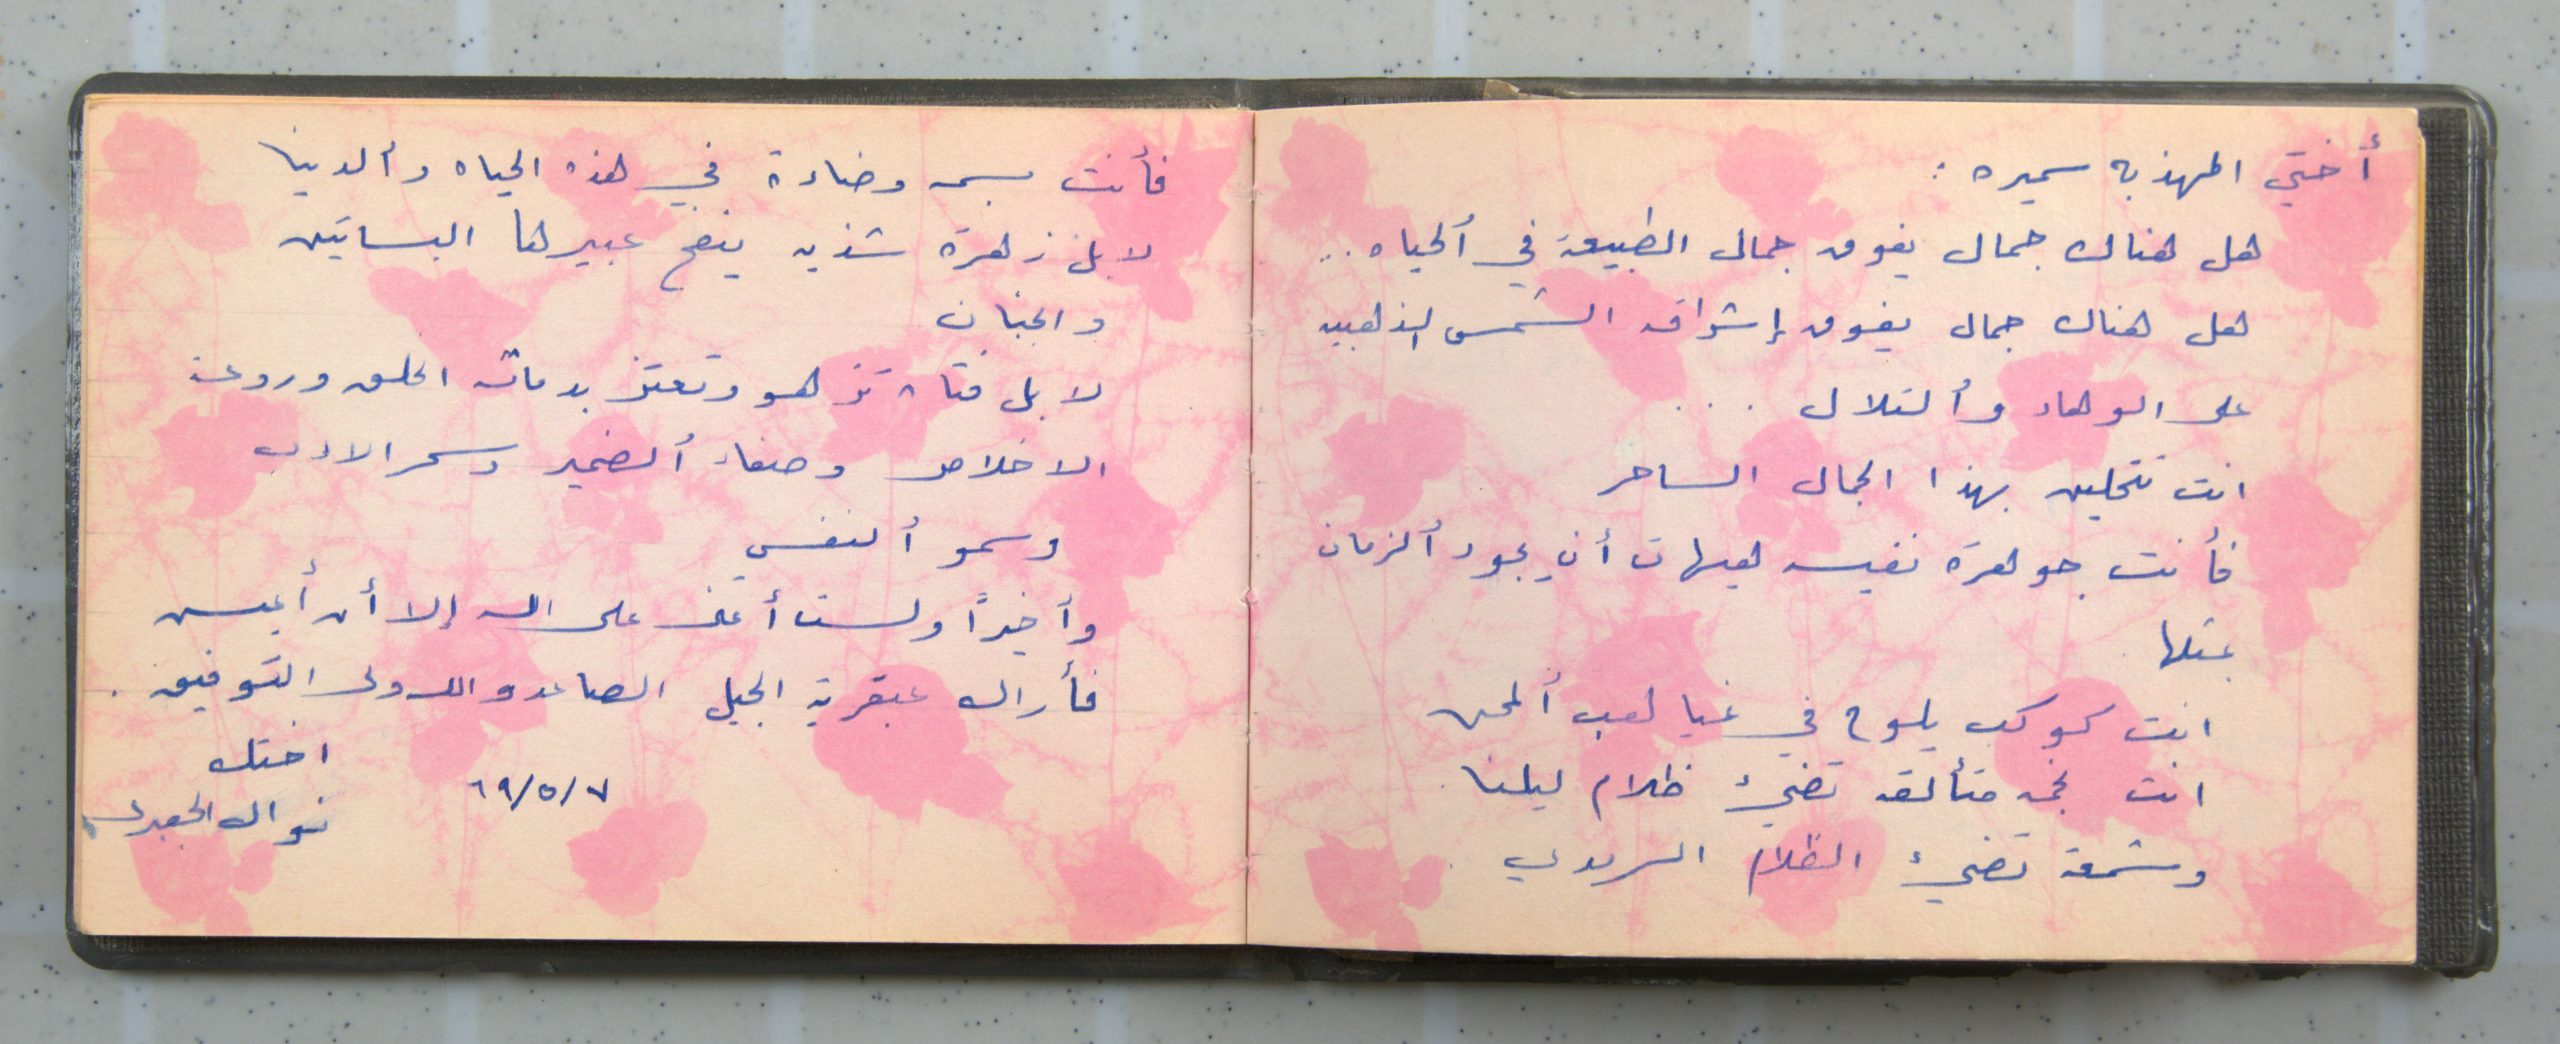 أختي المهذبه سميره :
هل هناك جمال يفوق جمال الطبيعة في ألحياه . . .
هل هناك جمال يفوق إشراقه الشمس الذهبيه
على الوهاد وألتلال . . . .
انت تتحلين بهذا الجمال الساحر
فأنت جوهرة نفيسه هيهات أن يجود ألزمان
بمثلها
انت كوكب يلوح في غياهب
انت نجمه متألقه تضيء ظلام ليلنا .
وشمعة تضيء الظلام السرمدي .
فأنت بسمه وضاءة في هذه الحياه وألدنيا
لا بل زهرة شذيه ينفح عبيرها البساتين
والجنان
لا بل فتاه تزهو وتعتز بدماثه الخلق وروعة
الاخلاص وصفاء ألضمير وسحر الادب
وسمو ألنفس
وأخيراً ولست أتمنى على الله إلا أن أعيش
فأراك عبقرية الجيل الصاعد والله ولى التوفيق .
اختك
٦٩/٥/٧
نوال الجعبرى